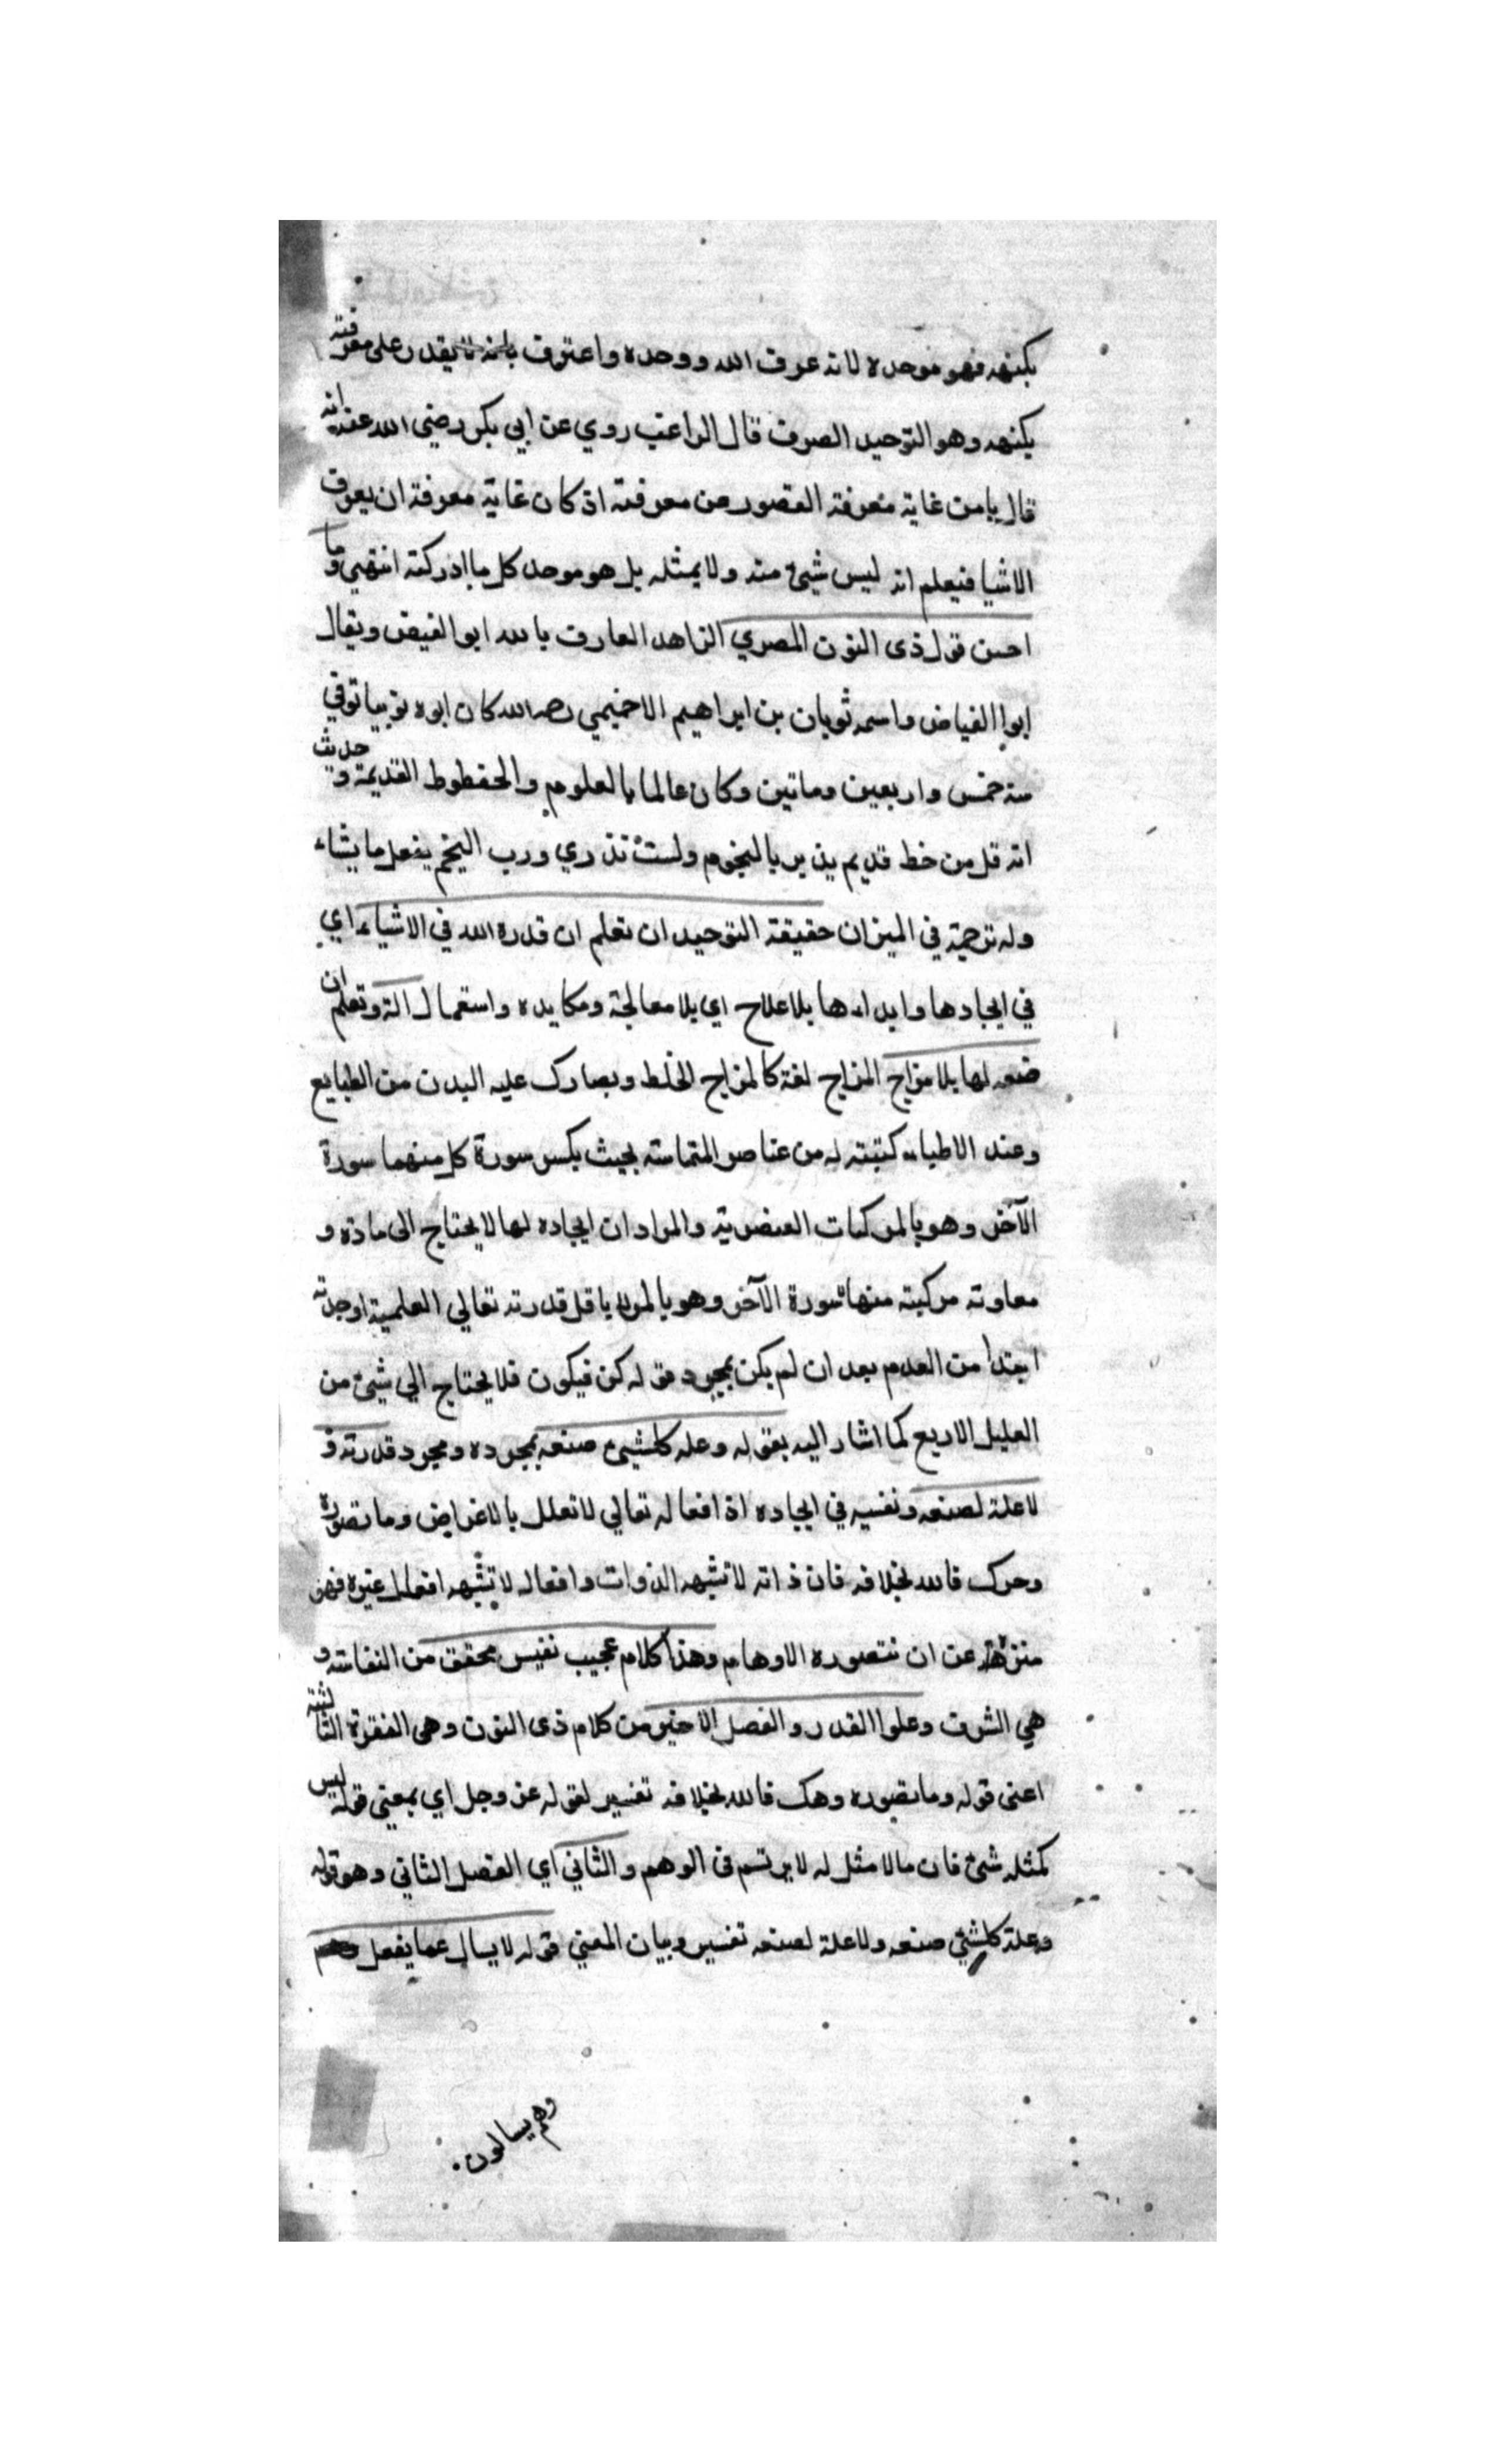 بكنهه فهو موحده لانه عرف الله ووحده واعترف بانه لا يقدر على معرفته
بكنهه وهو التوحيد الصرف قال الراغب روي عن ابي بكر رضي الله عنه انه
قال يا من غاية معرفته القصور عن معرفته اذ كان غاية معرفة ان يعرف
الاشيا فيعلم انه ليس شيئ منه ولا بمثله بل هو موحد كل ما ادركته انتهي وما
احسن قول ذى النون المصري الزاهد العارف بالله ابو الفيض ويقال
ابوا الفياض واسمه ثوبان بن ابراهيم الاخميمي رحمه الله كان ابوه نوبيا توفي
سنة خمس واربعين وماتين وكان عالما بالعلوم والخطوط القديمة وحديث
انه قل من خط قديم يدبر بالنجوم ولست تدري ورب النجم يفعل ما يشاء
وله ترجمة في الميزان حقيقة التوحيد ان تعلم ان قدرة الله في الاشياء اي
في ايجادها وابداءها بلا علاج اي بلا معالجة ومكايده واستعمال الة وتعلم ان
صنعه لها بلا مزاج المزاج لغة كالمزاج الخلط وبصارك عليه البدن من الطبايع
وعند الاطباء كتبته له من عناصر المتماسة بحيث يكسر سورة كل منهما سورة
الآخر وهو بالمركبات العنصرية والمراد ان ايجاده لها لا يحتاج الى مادة و
معاونة مركبته منها سورة الآخر وهو بالمراد باقل قدرته تعالي العلمية اوجدته
ابتدا من العدم بعد ان لم يكن بمجرد قوله كن فيكون فلا يحتاج الي شيئ من
العليل الاربع كما اشار اليه بقوله وعله كلشيئ صنعه بمجرده ومجرد قدرته و
لا علة لصنعه ونفسيه في ايجاده اذ افعاله تعالي لا تعلل بالاغراض وما تصوره
وحرك فالله بخلافه فان ذاته لا تشبهه الذوات وافعاله لا تشبهه افعال غيره فهو
منزه عن ان تتصوره الاوهام وهذا كلام عجيب نفيس محقق من النفاسة و
هي الشرف وعلوا القدر والفصل الاخير من كلام ذى النون وهى الفقرة الثالثة
اعنى قوله وما تصوره وهك فالله بخلافه تفسير لقوله عز وجل اي بمعنى قوله ليس
كمثله شئ فان ما لا مثل له لا يرتسم فى الوهم والثاني اي الفصل الثاني وهو قوله
وعلة كلشيئ صنعه ولا علة لصنعه تفسير وبيان المعني قوله لا يسال عما يفعل وهم
وهم يسالون.